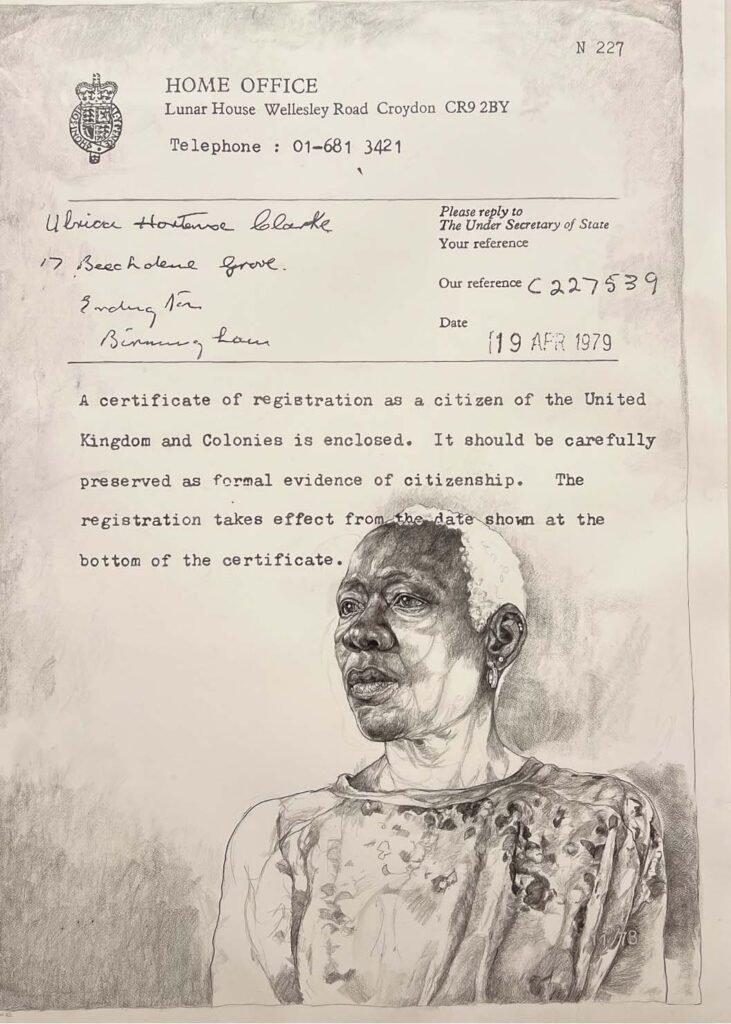 N 227
HOME OFFICE
Lunar House Wellesley Road Croydon CR9 2BY
Telephone : 01-681 3421
Ulrica Hortense Clarke
17 Beechdene Grove.
Erdington
Birmingham
Please reply to
The Under Secretary of State
Your reference
Our reference C227539
Date
19 APR 1979
A certificate of registration as a citizen of the United
Kingdom and Colonies is enclosed. It should be carefully
preserved as formal evidence of citizenship. The
registration takes effect from the date shown at the
bottom of the certificate.